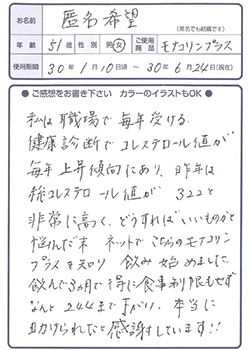 お名前 匿名希望
(匿名でも結構です)
年齢 51才 性別 男・女 ご使用商品 モナコリンプラス
使用期間 30年1月10日頃 ~ 30年6月24日(現在)
●ご感想をお書き下さい カラーのイラストもOK●
私は職場で毎年受ける
健康診断でコレステロール値が
毎年上昇傾向にあり、昨年は
総コレステロール値が 322と
非常に高く、どうすればいいものかと
悩んだ末 ネットでこちらのモナコリン
プラスを知り 飲み始めました。
飲んで3ヵ月で特に食事制限もせず
なんと244まで下がり、本当に
助けられたと感謝しています!!